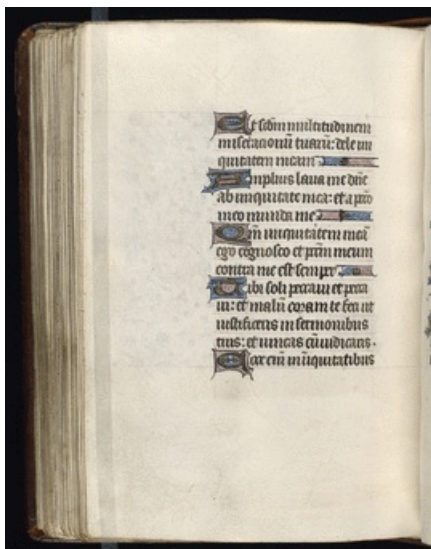 Et scdm multitudinem
miseracionū tuarū: dele ini
quitatem meam
Amplius laua me dñe
ab iniquitate mea: et a pctō
meo munda me
Qm̄ iniquitatem meā
ego cognosco et pctm meum
contra me est semper
Tibi soli peccaui et peca
ui: et malū coram te feci ut
iustificeris in sermonibus
tuis: et uincas cū iudicaris.
Ecce em̄ in iniquitatibus